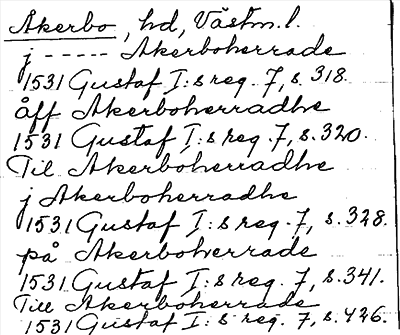 Åkerbo, hd, Västm. l.
j ----- Akerboherrade
1531 Gustaf I:s reg. 7, s. 318.
åff Akerboherradhe
1531 Gustaf I:s reg. 7, s. 320.
Til Akerboherradhe
j Akerboherradhe
1531 Gustaf I:s reg. 7, s. 328.
på Akerbohverrade
1531 Gustaf I:s reg. 7, s. 341.
Till Akerboherrade
1531 Gustaf I:s reg. 7, s. 426.